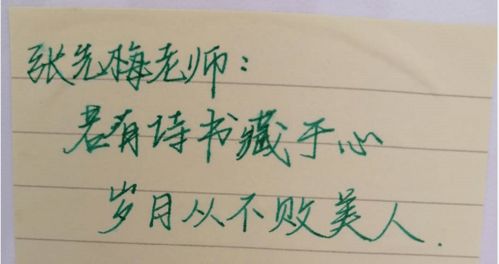 张先梅老师：
若有诗书藏于心
岁月从不败美人.